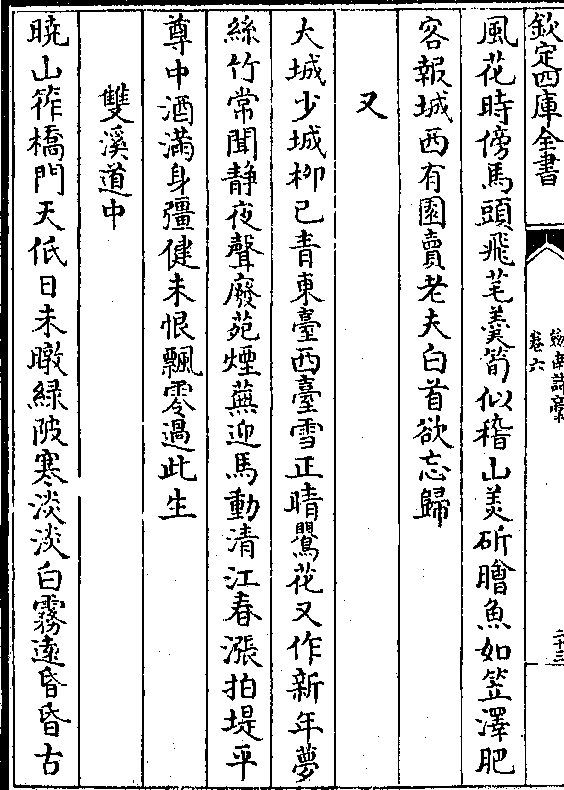 欽定四庫全書
劍南詩稾
卷六
二十三
風花時傍馬頭飛芼羮筍似稽山美斫膾魚如笠澤肥
客報城西有園賣老夫白首欲忘歸
又
大城少城柳已青東臺西臺雪正晴鸎花又作新年夢
絲竹常聞静夜聲廢苑煙蕪迎馬動清江春漲拍堤平
尊中酒滿身彊健未恨飄零過此生
雙溪道中
曉山筰橋門天低日未暾緑陂寒淡淡白霧遠昏昏古